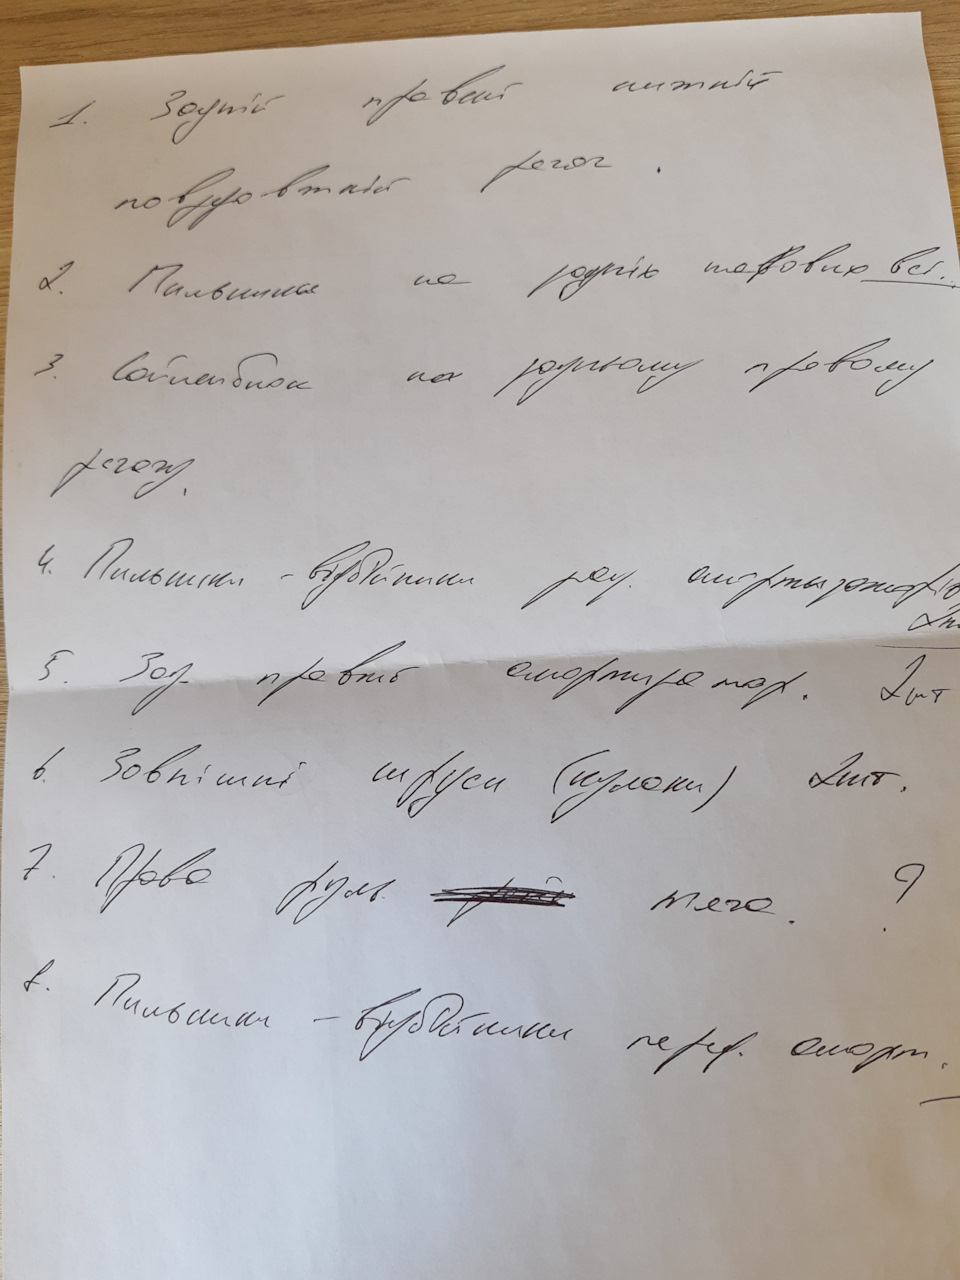 1. Задній правий нижній
повздовтній речаг.
2. Пильники на задніх шаровых всі.
3. Сайлентблок на задньому правому
речагу.
4. Пильники - відбійники зад. амортизаторів
2шт
5. Зад. правий амортизатор. 2шт
6. Зовнішні шруси (кулаки) 2шт.
7. Права руль. тяга. ?
8. Пильники - відбійники перед. аморт.